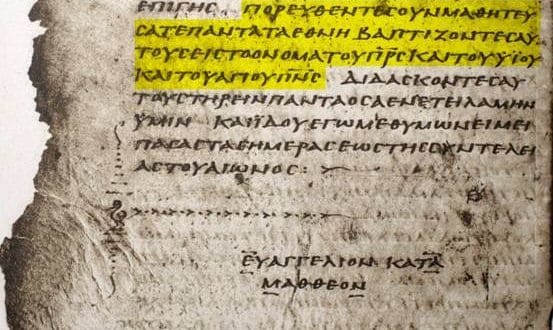 ΕΠΙΓΗΣ ΠΟΡΕΥΘΕΝΤΕΣΟΥΝΜΑΘΗΤΕΥ
ΣΑΤΕΠΑΝΤΑΤΑΕΘΝΗ ΒΑΠΤΙΖΟΝΤΕΣΑΥ
ΤΟΥΣΕΙΣΤΟΟΝΟΜΑΤΟΥΠΡΣ ΚΑΙΤΟΥΥΙΟΥ
ΚΑΙΤΟΥΑΓΙΟΥΠΝΣ ΔΙΔΑΣΚΟΝΤΕΣΑΥ
ΤΟΥΣΤΗΡΕΙΝΠΑΝΤΑΟΣΑΕΝΕΤΕΙΛΑΜΗΝ
ΥΜΙΝ ΚΑΙΪΔΟΥΕΓΩΜΕΘΥΜΩΝΕΙΜΕΙ
ΠΑΣΑΣΤΑΣΗΜΕΡΑΣΕΩΣΤΗΣΣΥΝΤΕΛΕΙ
ΑΣΤΟΥΑΙΩΝΟΣ:
ΕΥΑΓΓΕΛΙΟΝ ΚΑΤΑ
ΜΑΘΘΕΟΝ